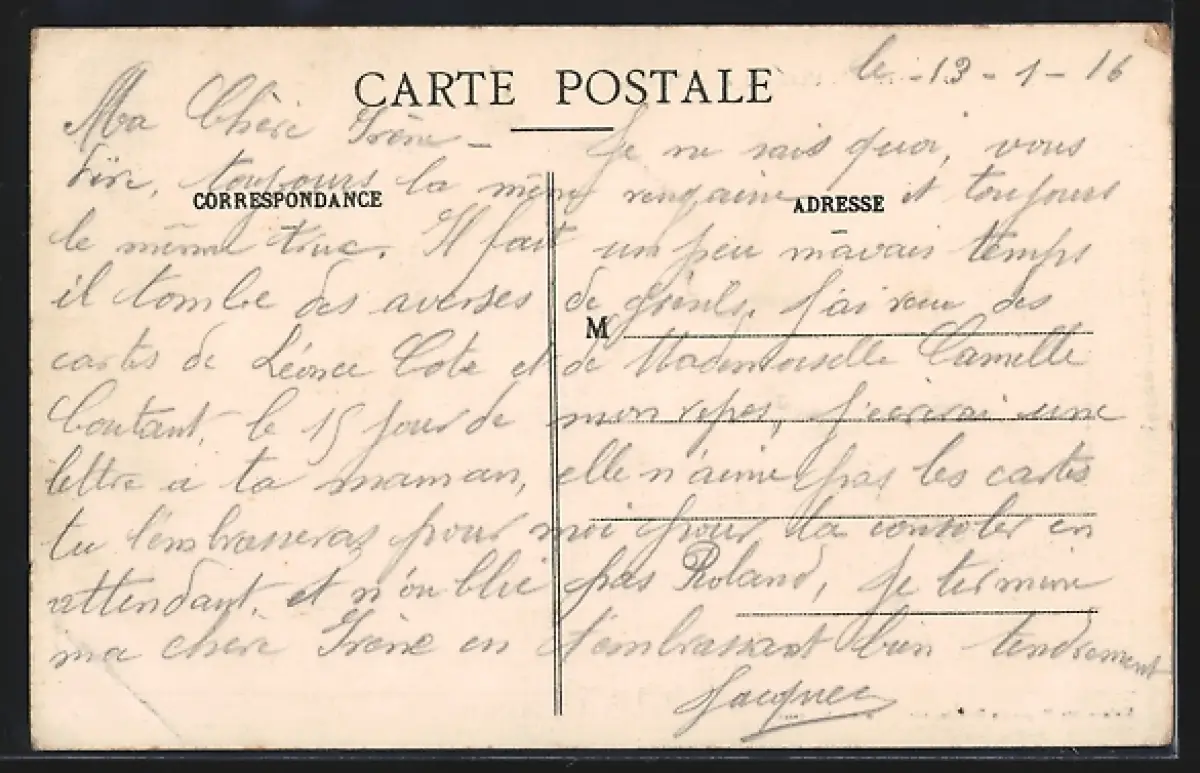 CARTE POSTALE
le - 13 - 1 - 16
Ma Chère Irène - Je ne sais quoi, vous
dire, toujours la même rengaine et toujours
CORRESPONDANCE
ADRESSE
le même truc. Il fait un peu mauvais temps
il tombe des averses de grêls. J'ai reçu des
M
cartes de Léonce Cote et de Mademoiselle Camille
Coutant, le 15 jour de mon repos, j'écrirai une
lettre a ta maman, elle n'aime pas les cartes
tu l'embrasseras pour moi pour la consoler en
attendant, et n'oublie pas Roland, Je termine
ma chère Irène en t'embrassant bien tendrement
Jacques